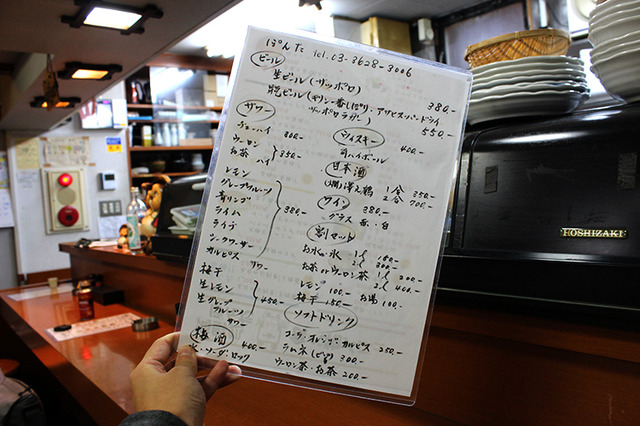 ぽんた tel. 03-3628-3006
ビール
生ビール(サッポロ) 380.-
瓶ビール(キリン一番しぼり・アサヒスーパードライ
サッポロラガー) 550.-
サワー
チューハイ 300.-
ウーロン
お茶 ハイ 350.-
レモン
グレープフルーツ
青リンゴ
ライム
ライチ
シークワーサー
カルピス サワー
380.-
梅干
生レモン
生グレープ
フルーツ
サワー
450.-
梅酒 400.-
水・ソーダ・ロック
ウィスキー
角ハイボール 400.-
日本酒
(燗)冷え鶴 1合 350.-
2合 700.-
ワイン 380.-
グラス 赤・白
割りセット
お水・氷 1ℓ 150.-
2ℓ 300.-
お茶orウーロン茶 1ℓ 200.-
2ℓ 400.-
レモン 100.- お湯 100.-
梅干 150.-
ソフトドリンク
コーラ・オレンジ・カルピス 250.-
ラムネ(ビン) 300.-
ウーロン茶・お茶 200.-
HOSHIZAKI